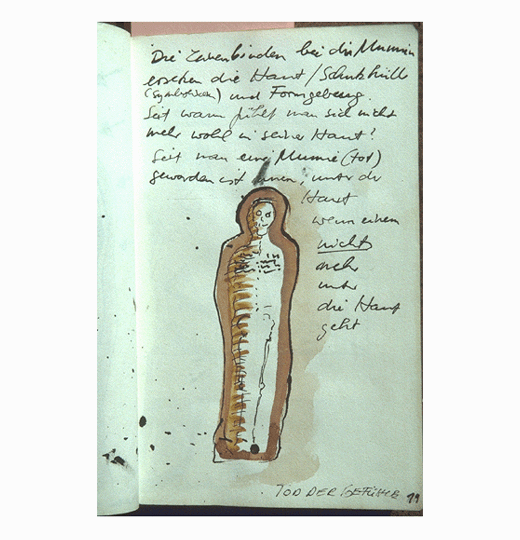 Die Leinenbinden bei der Mumien
ersetzen die Haut / Schutzhülle
(Symbolisch) und Formgebung.
Seit wann fühlt man sich nicht
mehr wohl in seiner Haut?
Seit man eine Mumie (tot)
geworden ist innen, unter der
Haut
wenn einem
nichts
mehr
unter
die Haut
geht
TOD DER GEFÜHLE 79